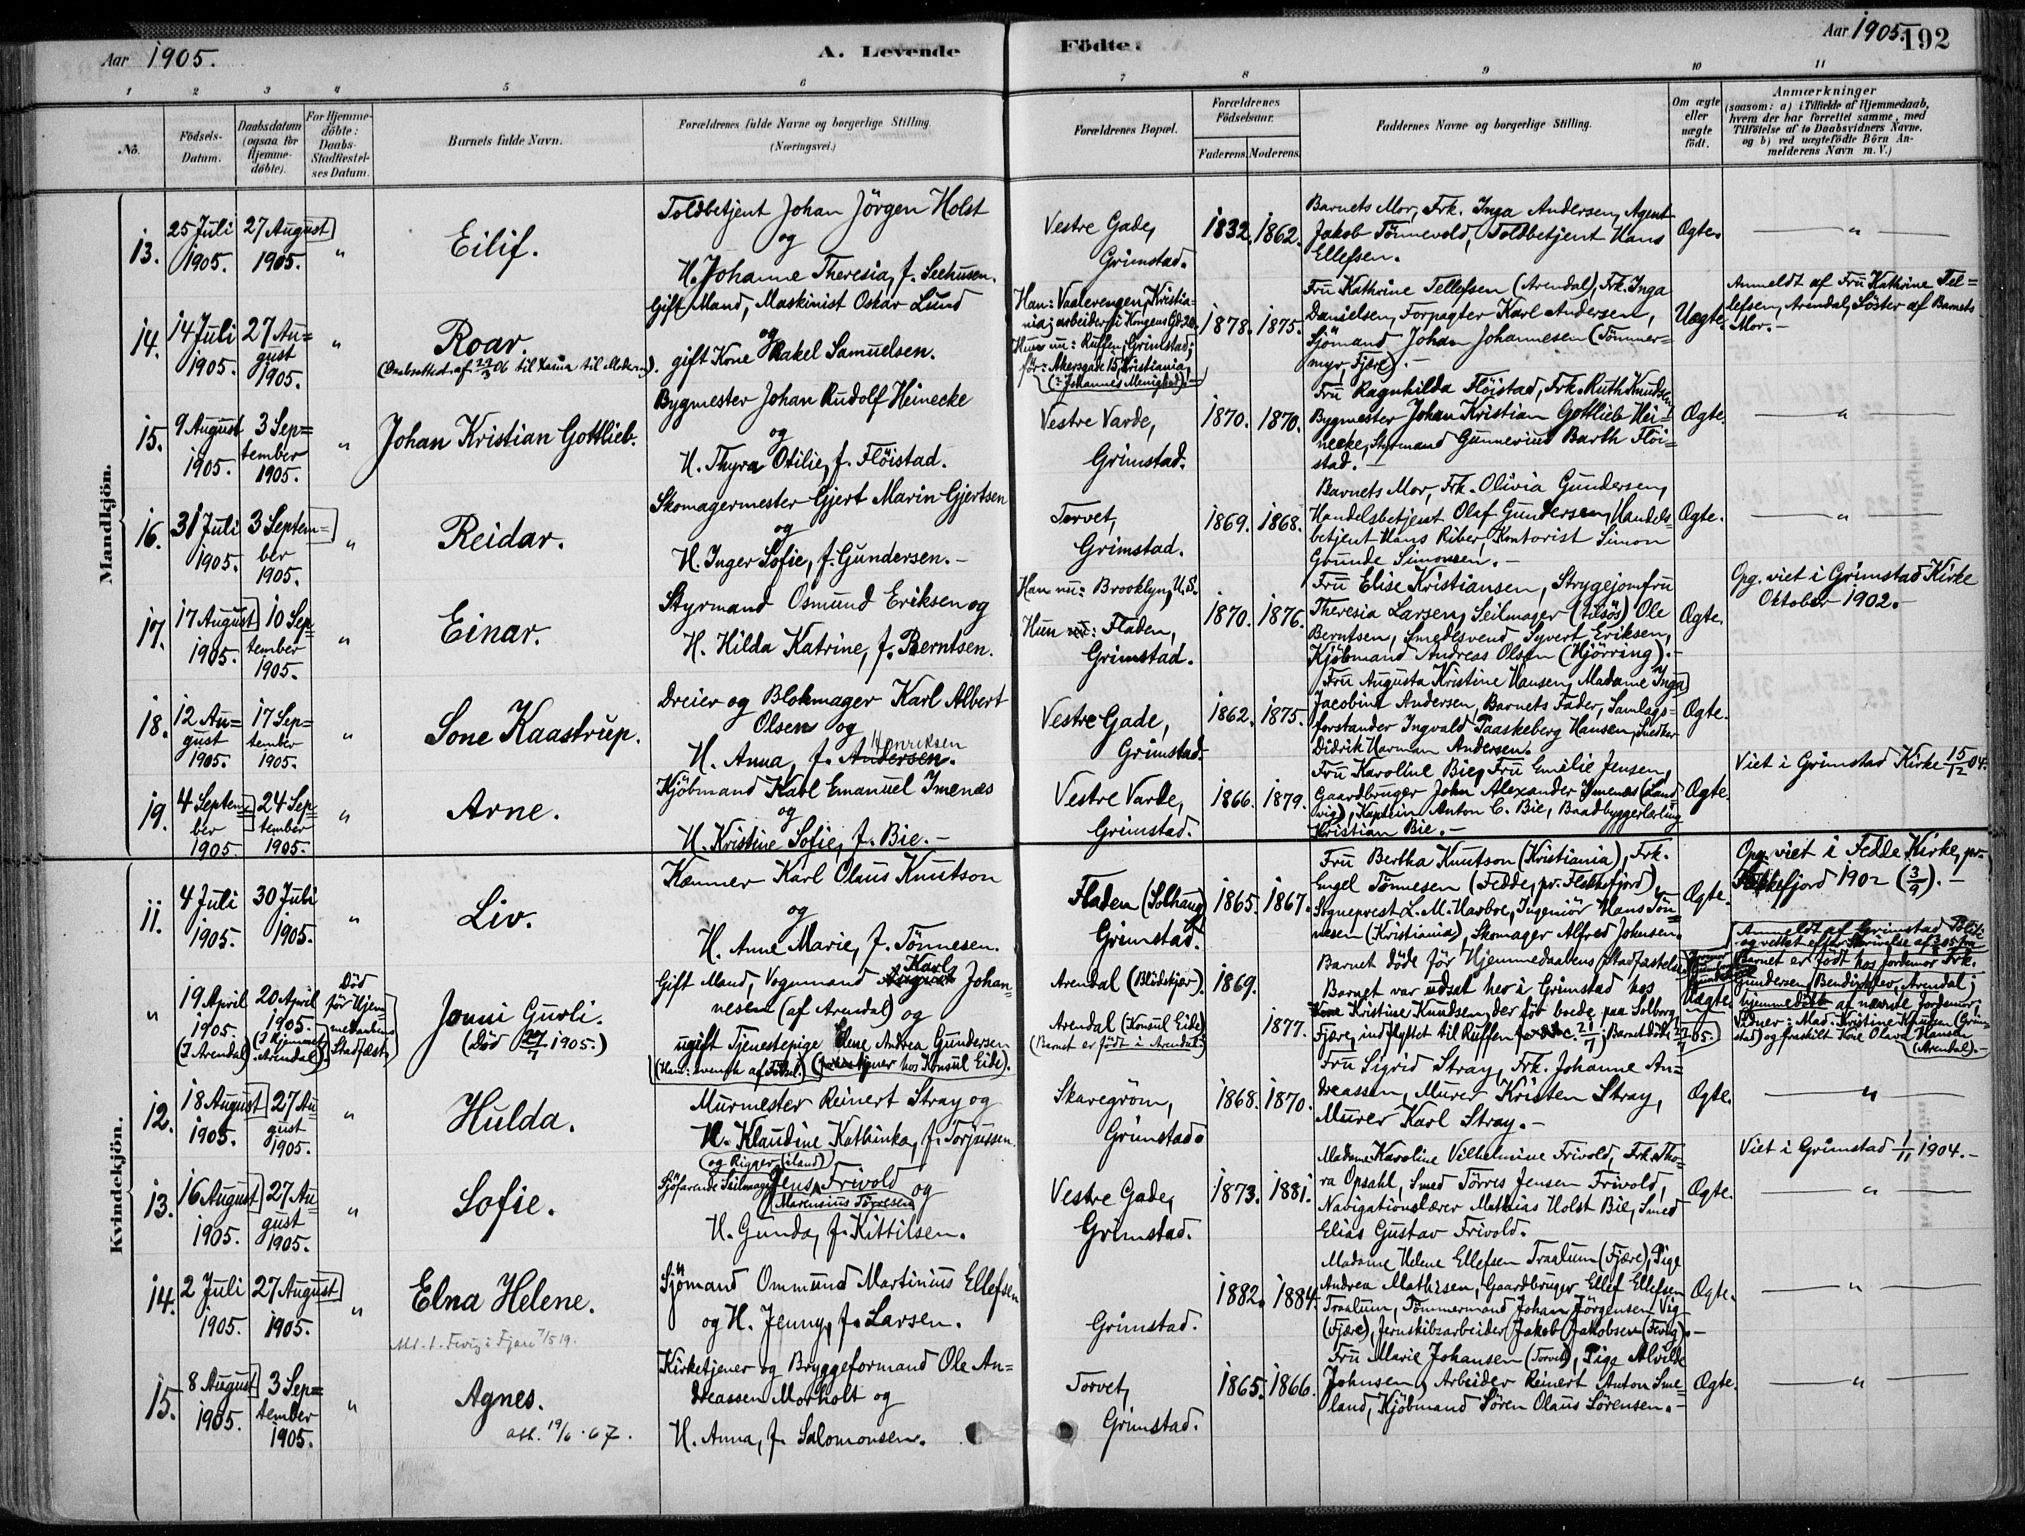 Aar 1905.
A. Levende
Födte.
Aar 1905.
192
1 2 3 4 5 6 7 8 9 10 11
No.
Födsels-Datum.
Daabsdatum (ogsaa for Hjemme-döbte).
For Hjemme-döbte: Daabs-Stadfæstel-ses Datum.
Barnets fulde Navn.
Forældrenes fulde Navne og borgerlige Stilling.
(Næringsvei.)
Forældrenes Bopæl.
Forældrenes Födselsaar.
Faderens. Moderens.
Faddernes Navne og borgerlige Stilling.
Om ægte eller uægte födt.
Anmærkninger
(saasom: a) i Tilfælde af Hjemmedaab, hvem der har forrettet samme, med Tilföielse af to Daabsvidners Navne, og b) ved uægtefödte Börn An-melderens Navn m. V.)
Mandkjön.
13.
25 Juli 1905.
27 August 1905.
"
Eilif.
Toldbetjent Johan Jörgen Holst
og
H. Johanne Theresia, f. Seehusen.
Vestre Gade,
Grimstad.
1832. 1862.
Barnets Mor, Frk. Inga Andersen, Agent
Jakob Tönnevold, Toldbetjent Hans
Ellefsen.
Ægte.
"
14.
14 Juli 1905.
27 Au=gust 1905.
"
Roar.
Gift Mand, Maskinist Oskar Lund
og
gift Kone Rakel Samuelsen.
Han: Vaalerengen, Kristia-
nia; arbeider i Kongens Gd. 20.
Hun nu: Ruffen, Grimstad;
för: Akersgade 15, Kristiania,
(: Johannes Menighed). -
1878. 1875.
Fru Kathrine Tellefsen (Arendal), Frk. Inga
Danielsen, Forpagter Karl Andersen,
Sjömand Johan Johannesen (Tömmer-
myr, Fjære). -
Uægte.
Anmeldt af Fru Kathrine Tel=
lefsen, Arendal, Söster af Barnets
Mor. -
15.
9 August 1905.
3 Sep=tember 1905.
"
Johan Kristian Gottlieb.
Bygmester Johan Rudolf Heinecke
og
H. Thyra Otilie, f. Flöistad.
Vestre Varde,
Grimstad.
1870. 1870.
Fru Ragnhilda Flöistad, Frk. Ruth Knudsen,
Bygmester Johan Kristian Gottlieb Hei-
necke, Styrmand Gunnerius Barth Flöi-
stad. -
Ægte.
"
16.
31 Juli 1905.
3 Septem=ber 1905.
"
Reidar.
Skomagermester Gjert Marin Gjertsen
og
H. Inger Sofie, f. Gundersen. -
Torvet,
Grimstad.
1869. 1868.
Barnets Mor, Frk. Olivia Gundersen,
Handelsbetjent Olaf Gundersen, Handels-
betjent Hans Riber, Kontorist Simon
Grunde Simonsen. -
Ægte.
"
17.
17 August 1905.
10 Sep=tember 1905.
"
Einar.
Styrmand Osmund Eriksen og
H. Hilda Katrine, f. Berntsen.
Han nu: Brooklyn, U.S.
Hun nu: Fladen,
Grimstad.
1870. 1876.
Fru Elise Kristiansen, Strygejomfru
Theresia Larsen, Seilmager (tilsös) Ole
Berntsen, Smedesvend Syvert Eriksen,
Kjöbmand Andreas Olsen (Hjörring). -
Ægte.
Opg. viet i Grimstad Kirke
Oktober 1902. -
18.
12 Au=gust 1905.
17 Sep=tember 1905.
"
Sone Kaastrup.
Dreier og Blokmager Karl Albert
Olsen og
H. Anna, f. Andersen. Henriksen
Vestre Gade,
Grimstad.
1862. 1875.
Fru Augusta Kristine Hansen, Madame Inga
Jacobine Andersen, Barnets Fader, Samlags-
forstander Ingvald Paaskeberg Hansen, Snedker
Didrik Herman Andersen.
Ægte.
19.
4 Septem=ber 1905.
24 Sep=tember 1905.
"
Arne.
Kjöbmand Karl Emanuel Imenæs
og
H. Kristine Sofie, f. Bie. -
Vestre Varde,
Grimstad.
1866. 1879.
Fru Karoline Bie, Fru Emilie Jensen,
Gaardbruger John Alexander Ymenæs (Land-
vig), Kaptein Anton C. Bie, Baadbyggerlærling
Kristian Bie. -
Ægte.
Viet i Grimstad Kirke 15/12 04.
Kvindekjön.
11.
4 Juli 1905.
30 Juli 1905.
"
Liv.
Kæmner Karl Olaus Knutson
og
H. Anne Marie, f. Tönnesen.
Fladen (Solhaug)
Grimstad.
1865. 1867.
Fru Bertha Knutson (Kristiania), Frk.
Engel Tönnesen (Fedde, pr. Flekkefjord),
Sogneprest L. M. Harboe, Ingeniör Hans Tön-
nesen (Kristiania), Skomager Alfred Johnsen.
Ægte.
Opg. viet i Fedde Kirke, pr.
Flekkefjord 1902 (3/9). -
"
19 April 1905. (I Arendal)
20 April 1905. (I Hjemmet Arendal)
Död för Hjem-medaabens Stadfæst.
Jonni Gurli.
(Död 27/7 1905.)
Gift Mand, Vognmand August Karl Johan-
nesen (af Arendal) og
ugift Tjenestepige Elene Andrea Gundersen
Arendal (Blödekjær).
Arendal (Konsul Eide)
(Barnet er födt i Arendal.)
1869.
1877.
Barnet döde för Hjemmedaabens Stadfæstelse
Barnet var udsat her i Grimstad hos
Kone Kristine Knudsen, der för boede paa Solborg
Uægte
Anmeldt af Grimstad Politi
Barnet er födt hos Jordemor Frk.
Gundersen, Bendiksklev, Arendal;
hjemmedöbt af nævnte Jordemor;
Vidner: Mad. Kristine Knudsen (Grim-
stad) og fraskilt Kone Olava Hansen
(Arendal). -
12.
18 August 1905.
27 Au=gust 1905.
"
Hulda.
Murmester Reinert Stray og
H. Klaudine Kathinka, f. Torjussen.
Skaregröm,
Grimstad.
1868. 1870.
Fru Sigrid Stray, Frk. Johanne An-
dreassen, Murer Kristen Stray,
Murer Karl Stray. -
Ægte.
"
13.
16 August 1905.
27 Au=gust 1905.
"
Sofie.
og Rigger (iland)
Sjöfarende Seilmager Jens Frivold
Marensius Törresen og
H. Gunda, f. Kittilsen.
Vestre Gade,
Grimstad.
1873. 1881.
Madame Karoline Vilhelmine Frivold, Frk. Tho-
ra Opsahl, Smed Törris Jensen Frivold,
Navigationslærer Mathias Holst Bie, Smed
Elias Gustav Frivold.
Ægte.
Viet i Grimstad 1/11 1904. -
"
14.
2 Juli 1905.
27 August 1905.
"
Elna Helene.
Sjömand Ommund Martinius Ellefsen
og H. Jenny, f. Larsen.
Grimstad.
1882. 1884.
Madame Helene Ellefsen Traalum (Fjære), Pige
Andrea Mathisen, Gaardbruger Ellef Ellefsen
Traalum, Tömmermand Johan Jörgensen Vig
(Fjære), Jernskibsarbeider Jakob Jakobsen (Fevig). -
Ægte.
"
15.
8 August 1905.
3 Sep=tember 1905.
"
Agnes.
Kirketjener og Bryggeformand Ole An=
dreassen Morholt og
H. Anna, f. Salomonsen.
Torvet,
Grimstad.
1865. 1866.
Fru Marie Johansen (Torvet), Pige Alvilde
Johnsen, Arbeider Reinert Anton Sme-
land, Kjöbmand Sören Olaus Sörensen. -
Ægte.
"